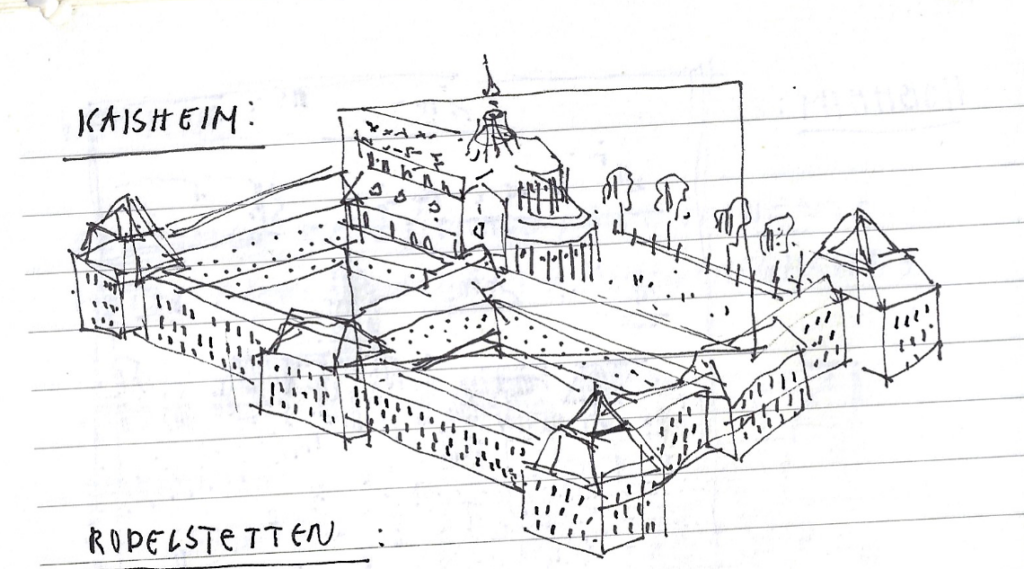 KAISHEIM:
RODELSTETTEN :